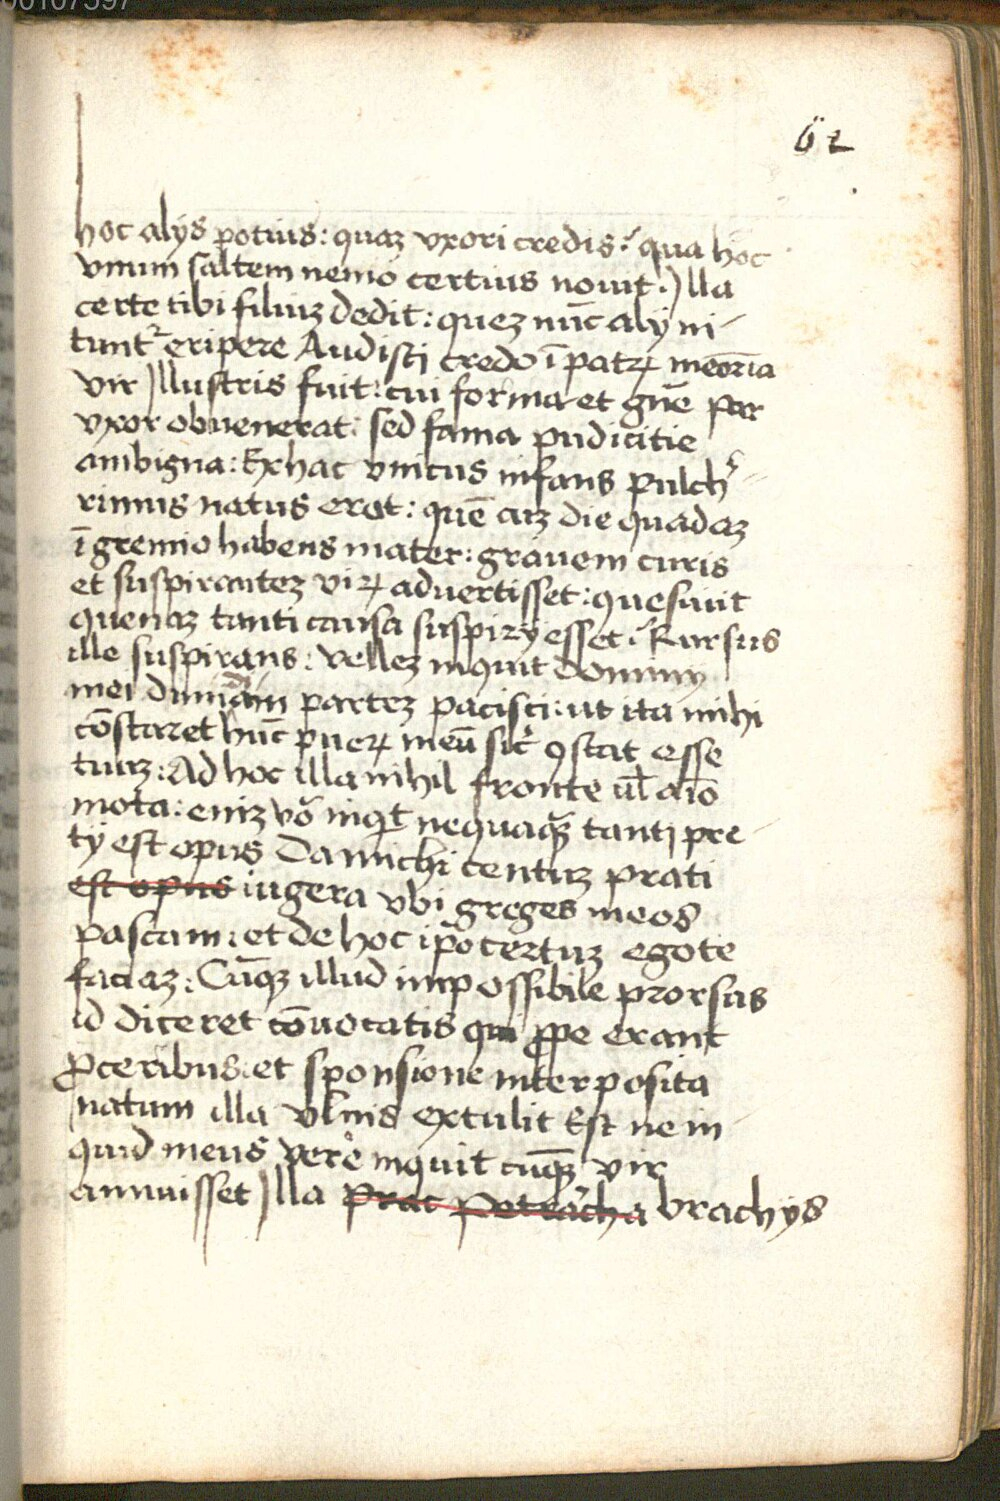 00107597
62
hoc alijs potius: quaʒ vxori credis? qua hoc
vnum saltem nemo certius nouit. Illa
certe tibi filiuʒ dedit: queʒ nūc alij ni-
tunt᷑ eripere Audisti credo ī patꝝ meōria
vir Illustris fuit: cui forma et gn̄e par
vxor obuenerat: sed fama pudicitie
ambigua: Ex hac vnicus infans pulch-
rimus natus erat: quē cuʒ die quadaʒ
ī gremio habens mater: grauem curis
et suspiranteʒ viꝝ aduertisset: quesiuit
quenaʒ tanti causa suspirij esset? Rursus
ille suspirans: velleʒ inquit
mei dimidiam parteʒ pacisci: ut ita mihi
cōstaret hūc pueꝝ meū sic̄ ꝯstat esse
tuuʒ: Ad hoc illa nihil fronte ul̄ aīo
mota: eniʒ vō inqt nequaqʒ tanti pre-
tij est opus Da michi centuʒ prati
est opus iugera vbi greges meos
pascam: et de hoc ip̄o certuʒ ego te
faciaʒ: Cūqʒ illud impossibile prorsus
id diceret cōuocatis qui ꝓpe erant
ꝓceribus: et sponsione interposita
natum illa vlnis extulit Est ne in-
quid meus vere inquit cuqʒ vir
annuisset Illa Prac Petrarcha brachijs